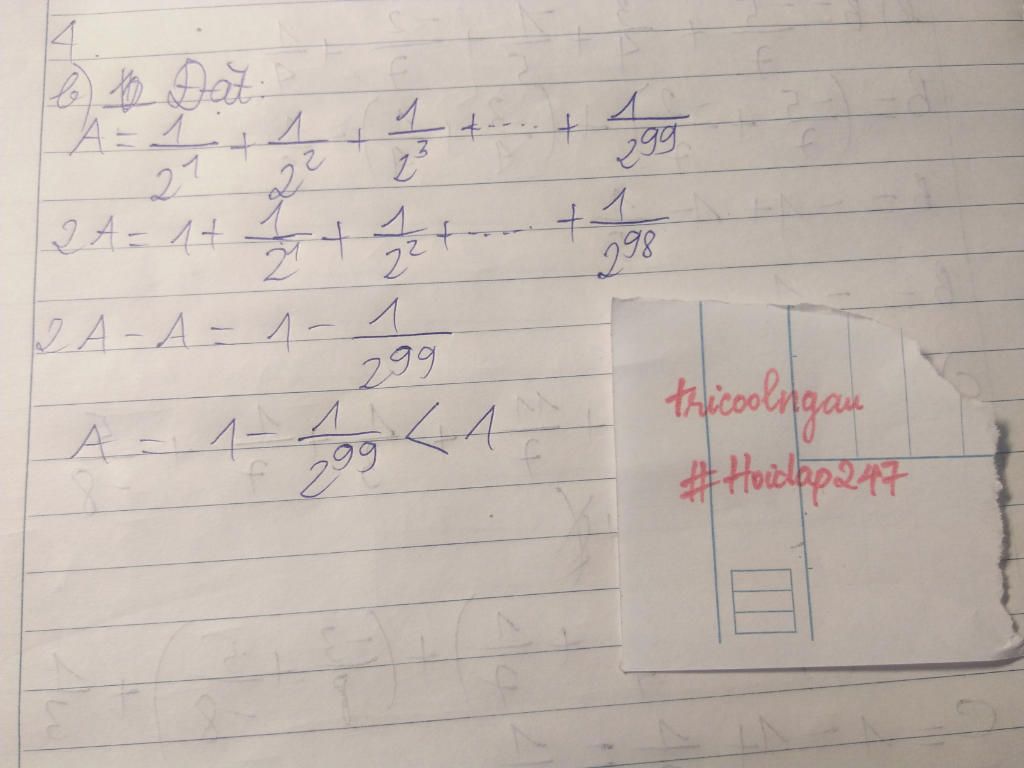 4
b) Đặt:
A = 1/2^1 + 1/2^2 + 1/2^3 + .... + 1/2^99
2A = 1 + 1/2^1 + 1/2^2 + ..... + 1/2^98
2A - A = 1 - 1/2^99
A = 1 - 1/2^99 < 1
tricoolngau
#Hoidap247